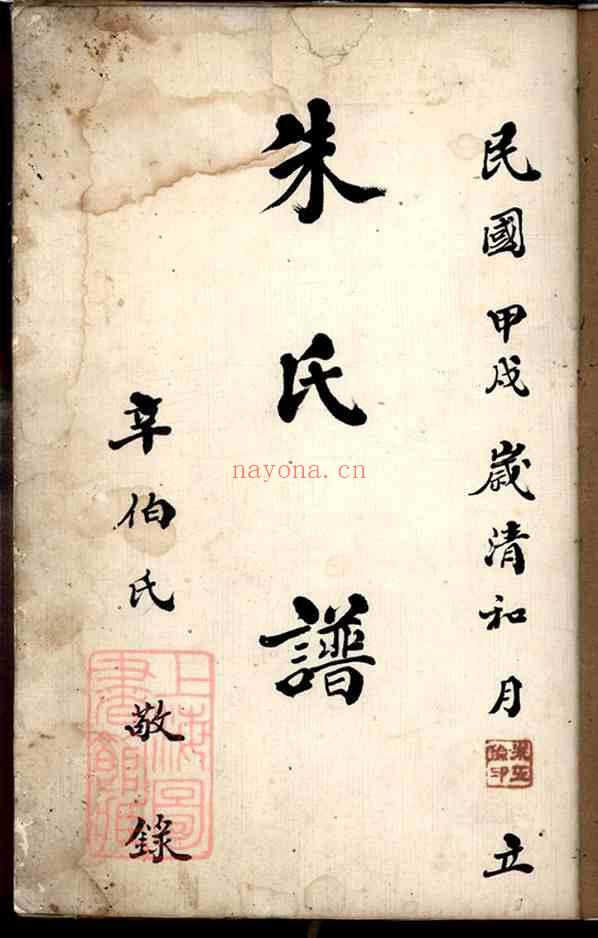 民國甲戌歲清和月立
朱氏譜
辛伯氏敬錄
上海圖書館藏
nayona.cn